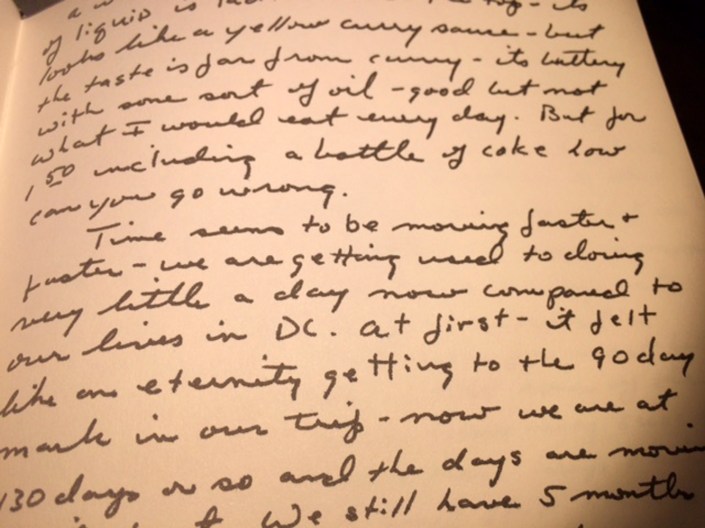 of liquid is
looks like a yellow curry sauce - but
the taste is far from curry - its buttery
with some sort of oil - good but not
what I would eat every day. But for
1 50 including a bottle of coke how
can you go wrong.
Time seems to be moving faster +
faster - we are getting used to doing
very little a day now compared to
our lives in DC. At first - it felt
like an eternity getting to the 90 day
mark in our trip - now we are at
130 days or so and the days are movin
We still have 5 months